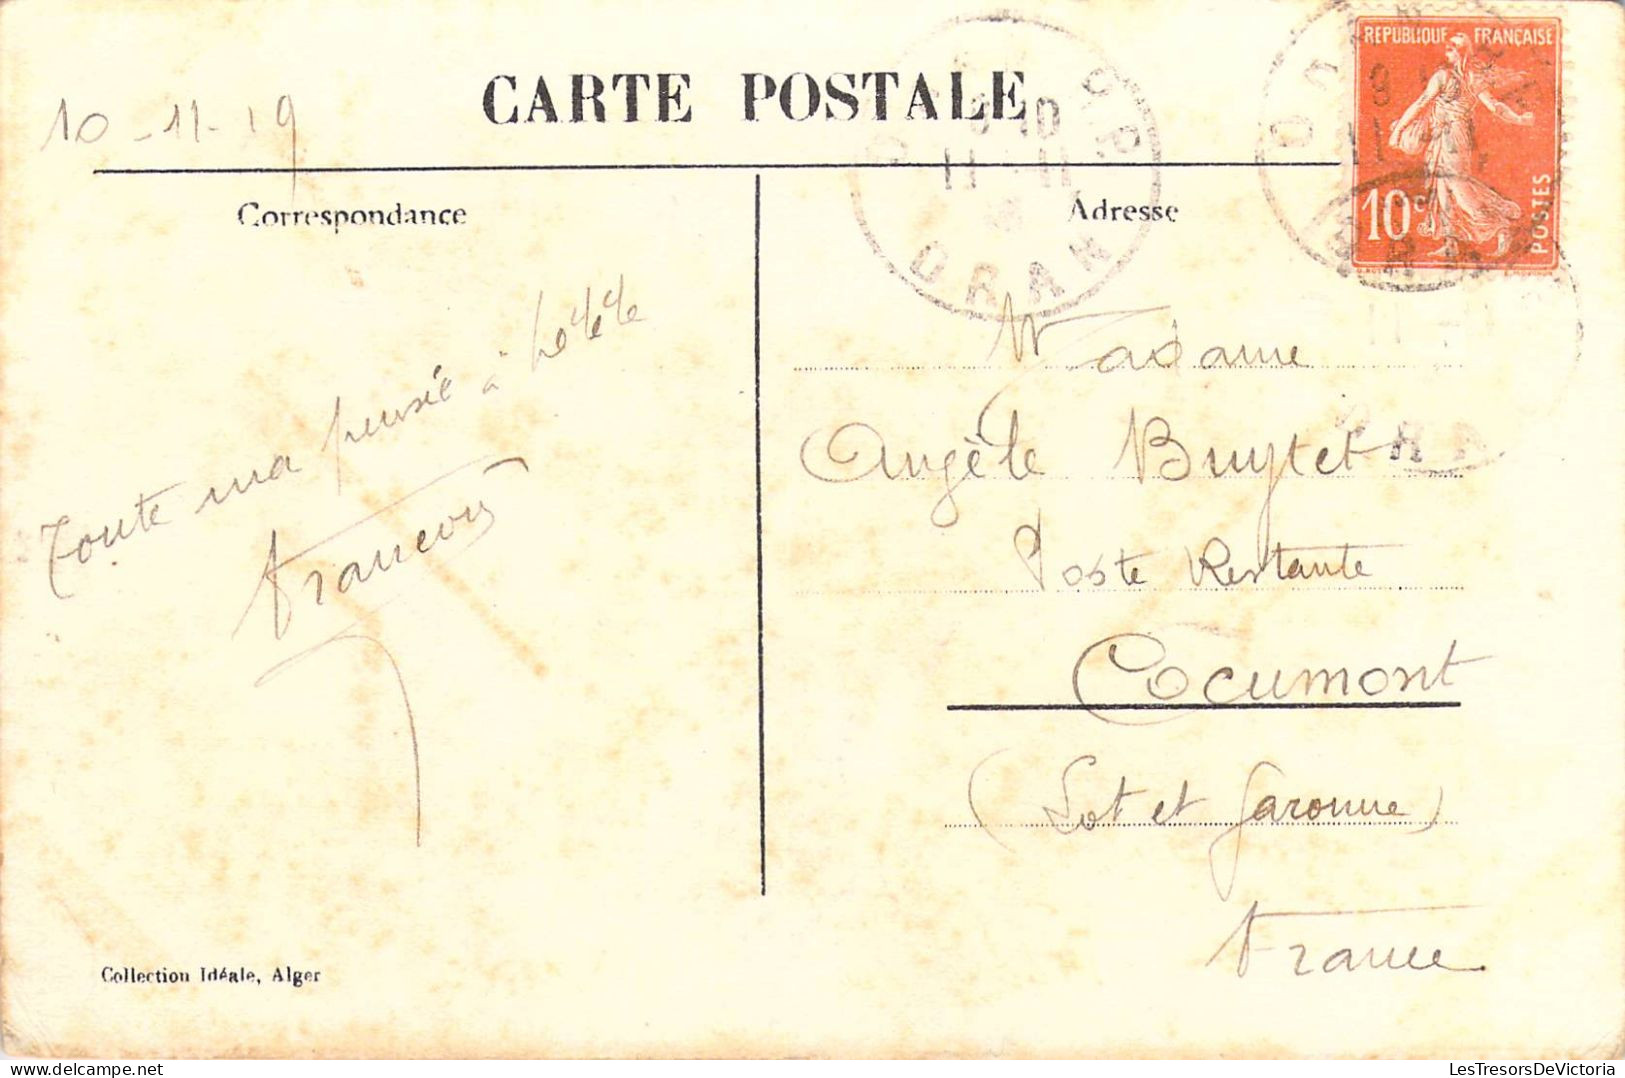 REPUBLIQUE FRANÇAISE
10c
POSTES
CARTE POSTALE
10-11-19
Correspondance
Adresse
ORAN
11 - 11
Toute ma pensée à
François
Madame
Angèle Buytet
Poste Restante
Cocumont
(Lot et Garonne)
France
Collection Idéale, Alger
LesTresorsDeVictoria